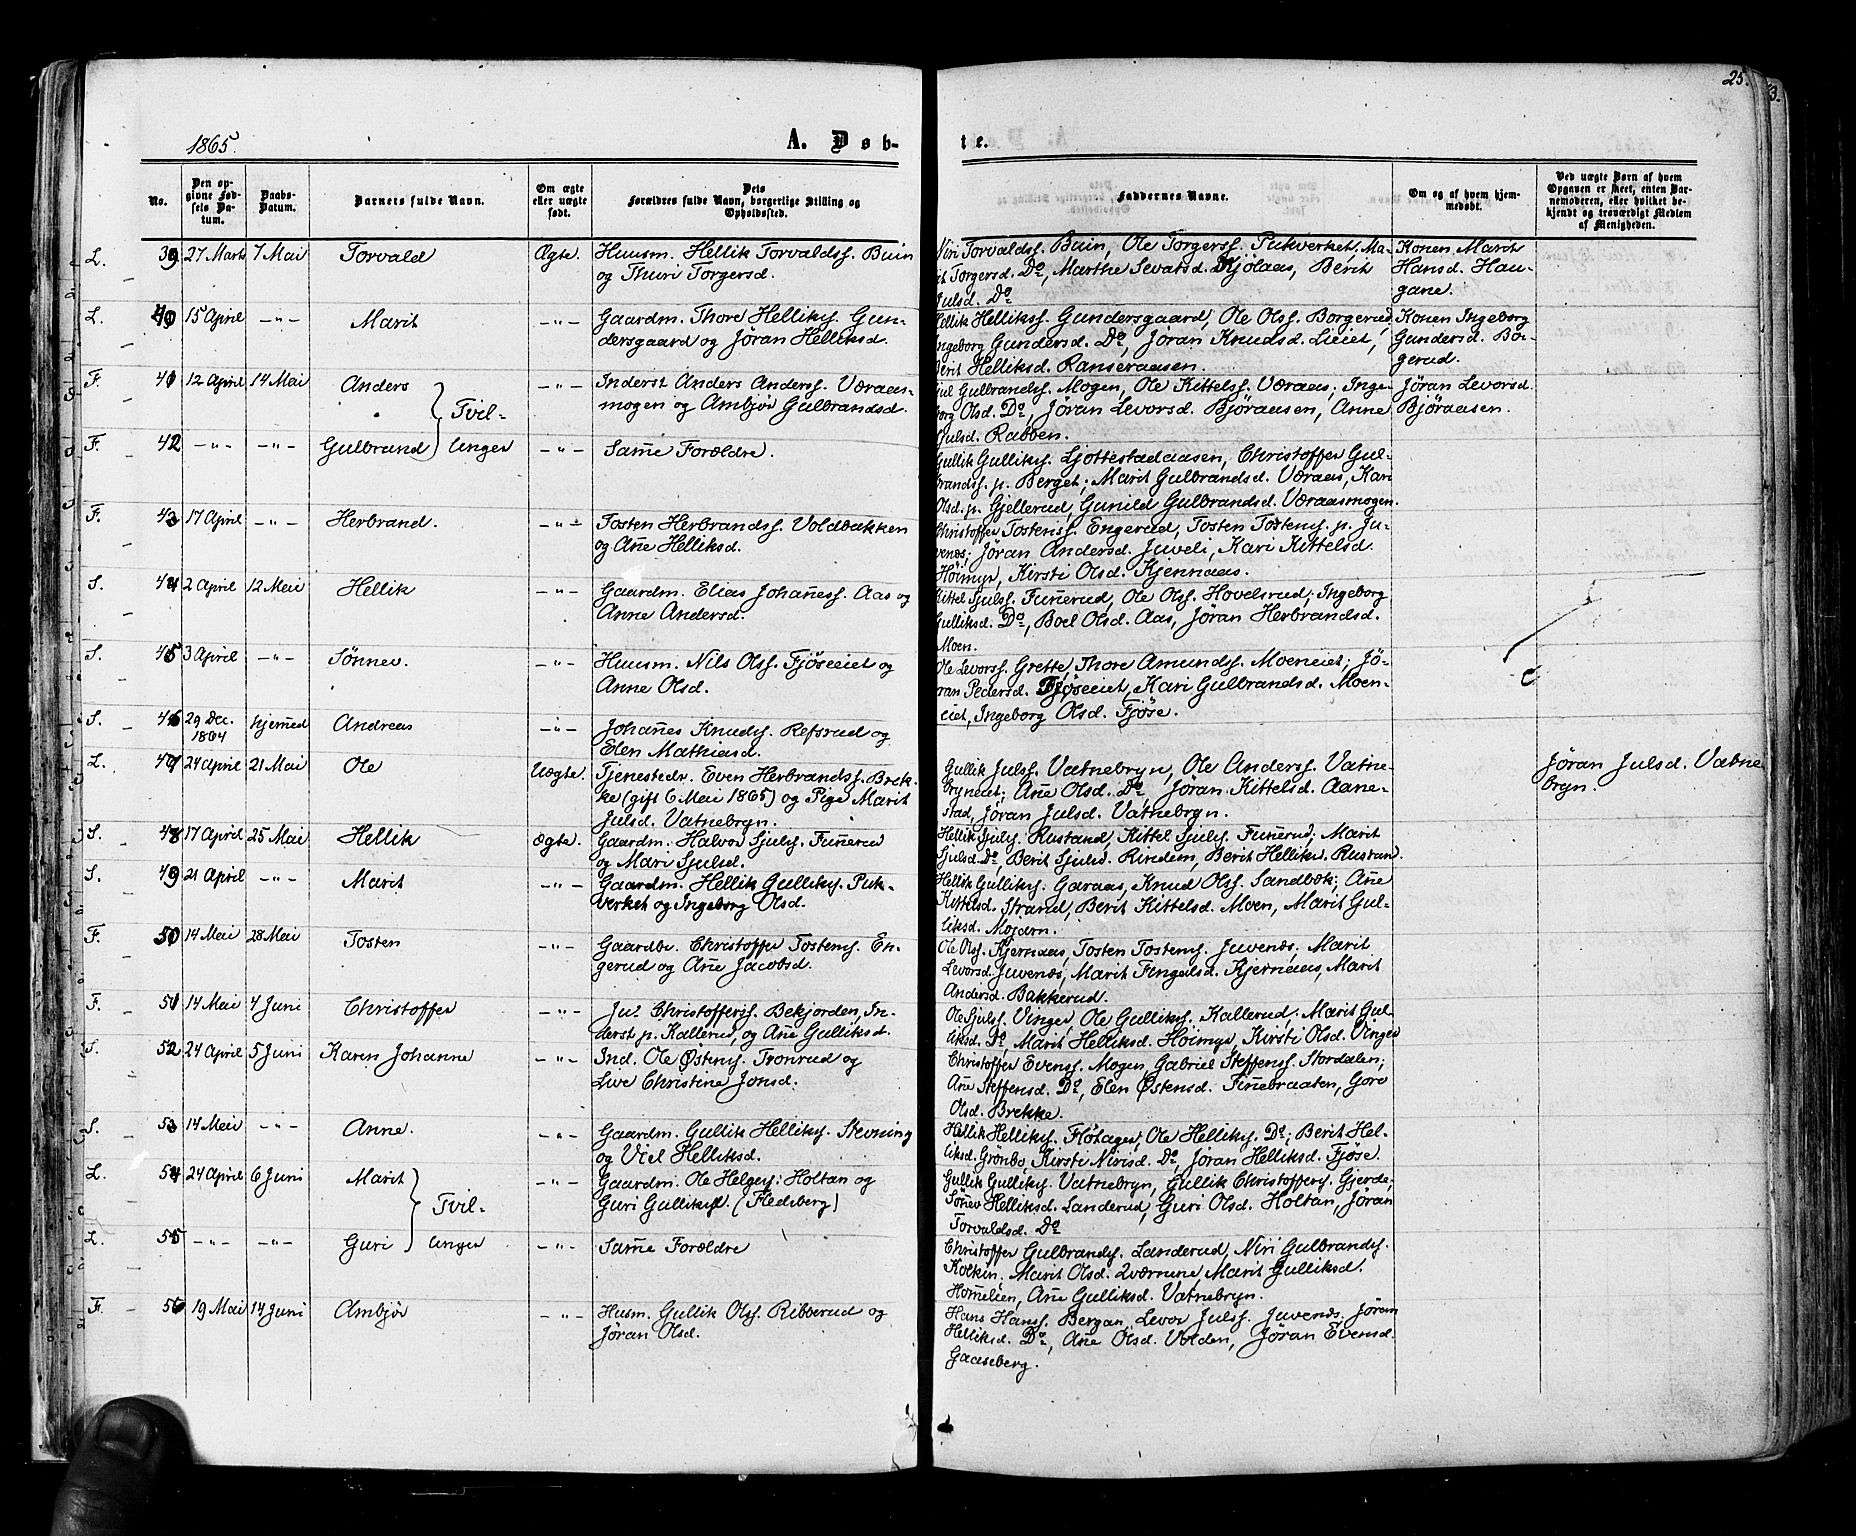 25.
1865.
A. Døb-
te.
No.
Den op-
givne Fød-
sels Da-
tum.
Daabs-
Datum.
Barnets fulde Navn.
Om ægte
eller uægte
født.
Dets
Forældres fulde Navn, borgerlige Stilling og
Opholdssted.
Faddernes Navne.
Om og af hvem hjem-
medøbt.
Ved uægte Børn af hvem
Opgaven er skeet, enten Bar-
nemoderen, eller hvilket be-
kjendt og troværdigt Medlem
af Menigheden.
L. 39 27 Marts 7 Mai Torvald Ægte Huusm. Hellik Torvaldss. Buin
og Thuri Torgersd.
Niri Torvaldss. Buin, Ole Torgerss. Pukverket, Ma-
rit Torgersd. Do, Marthe Sevatsd. Kjølaas, Berit
Julsd. Do
Konen Marit
Hansd. Hau-
gane.
L. 40 15 April -"- Marit -"- Gaardm. Thore Helliks. Gun-
dersgaard og Jøran Helliksd.
Hellik Hellikss. Gundersgaard, Ole Olss. Borgerud,
Ingeborg Gundersd. Do, Jøran Knudsd. Lieiet,
Berit Helliksd. Ranseraasen.
Konen Ingeborg
Gundersd. Bor-
gerud.
F. 41 12 April 14 Mai Anders Tvil- -"- Inderst Anders Anderss. Væraas-
mogen og Ambjør Gulbrandsd.
Jul Gulbrandss. Mogen, Ole Kittelss. Væraas; Inge-
borg Olsd. Do, Jøran Levorsd. Bjøraasen, Anne
Julsd. Rabben.
Jøran Levorsd.
Bjøraasen.
F. 42 -"- -"- Gulbrand linger -"- Samme Forældre.
Gullik Gulliks. Ljøttestadaasen, Christoffer Gul-
brandss. p. Berget; Marit Gulbrandsd. Væraas, Kari
Olsd. p. Gjellerud, Gunild Gulbrandsd. Væraasmogen.
F. 43 17 April -"- Herbrand. -"- Tosten Herbrandss. Voldbakken
og Ane Helliksd.
Christoffer Tostenss. Engerud, Tosten Tostens. p. Ju-
venæs; Jøran Andersd. Juveli, Kari Kittelsd.
Høimyr, Kirsti Olsd. Kjennaas.
S. 44 2 April 12 Mai Hellik -"- Gaardm. Elias Johaness. Aas og
Anne Andersd.
Kittel Sjulss. Funerud, Ole Olss. Hovelsrud; Ingeborg
Gulliksd. Do, Boel Olsd. Aas, Jøran Herbrandsd.
Moen.
S. 45 3 April -"- Sønnev. -"- Huusm. Nils Olss. Fjøseeiet og
Anne Olsd.
Ole Levorss. Grette, Thore Amundss. Moeneiet; Jø-
ran Pedersd. Fjøseeiet, Kari Gulbrandsd. Moen-
eiet, Ingeborg Olsd. Fjøse.
S. 46 29 Dec.
1864 hjemmed Andreas -"- Johanes Knuds. Refsrud og
Elen Mathiasd.
L. 47 24 April 21 Mai Ole Uægte. Tjenestedr. Even Herbrandss. Brek-
ke (gift 6 Mai 1865) og Pige Marit
Julsd. Vatnebryn.
Gullik Julss. Vatnebryn, Ole Anderss. Vatne-
bryneiet; Ane Olsd. Do Jøran Kittelsd. Aane-
stad, Jøran Julsd. Vatnebryn.
Jøran Julsd. Vatne
bryn.
S. 48 17 April 25 Mai Hellik Ægte. Gaardm. Halvor Sjuls. Funerud
og Mari Sjulsd.
Hellik Sjuls. Rustand, Kittel Sjuls. Funerud, Marit
Sjulsd. Do, Berit Sjulsd. Rindem, Berit Helliksd. Rustan.
S. 49 21 April -"- Marit -"- Gaardm. Hellik Gulliks. Puk-
verket og Ingeborg Olsd.
Hellik Gulliks. Garaas, Knud Olss. Sandbæk; Ane
Kittelsd. Strand, Berit Kittelsd. Moen, Marit Gul-
liksd. Mojarn.
F. 50 14 Mai 28 Mai Tosten -"- Gaardbr. Christoffer Tostens. En-
gerud og Ane Jacobsd.
Ole Olss. Kjernaas, Tosten Tostens. Juvenæs; Marit
Levorsd. Juvenæs, Marit Fingalsd. Kjernaas, Marit
Andersd. Bakkerud.
F. 51 14 Mai 4 Juni Christoffer -"- Ju. Christofferss. Bekjorden, In-
derst p. Kallerud, og Ane Gulliksd.
Ole Sjulss. Vinger, Ole Gulliks. Kallerud; Marit Gul
liksd. Do, Marit Helliksd. Høimyr, Kirsti Olsd. Vinger
S. 52 24 April 5 Juni Karen Johanne -"- Ind. Ole Østens. Tronrud og
Live Christine Jonsd.
Christoffer Evenss. Mogen, Gabriel Steffenss. Stordalen;
Ane Steffensd. Do, Elen Østensd. Finebraaten, Goro
Olsd. Brekke.
S. 53 14 Mai -"- Anne. -"- Gaardm. Gullik Helliks. Stevning
og Viel Helliksd.
Hellik Helliks. Fløtager, Ole Helliks. Do; Berit Hel-
liksd. Grønbo, Kirsti Nirisd. Do, Jøran Helliksd. Fjøse.
L. 54 24 April 6 Juni Marit Tvil- -"- Gaardm. Ole Helges. Holtan og
Guri Gulliksd. (Flesberg)
Gullik Gulliks. Vatnebryn, Gullik Christoffers. Gjerde;
Sønev Helliksd. Landerud, Guri Olsd. Holtan, Jøran
Torvaldsd. Do
L. 55 -"- -"- Guri linger -"- Samme Forældre
Christoffer Gulbrands. Landerud, Niri Gulbrands.
Kolkin, Marit Olsd. Qværnene, Marit Gulliksd.
Homelien, Ane Gulliksd. Vatnebryn.
F. 56 19 Mai 14 Juni Ambjør -"- Husm. Gullik Olss. Ribberud og
Jøran Olsd.
Hans Hanss. Bergan, Levor Julss. Juvenæs, Jøran
Helliksd. Do, Ane Olsd. Volden, Jøran Evensd.
Gaaseberg.